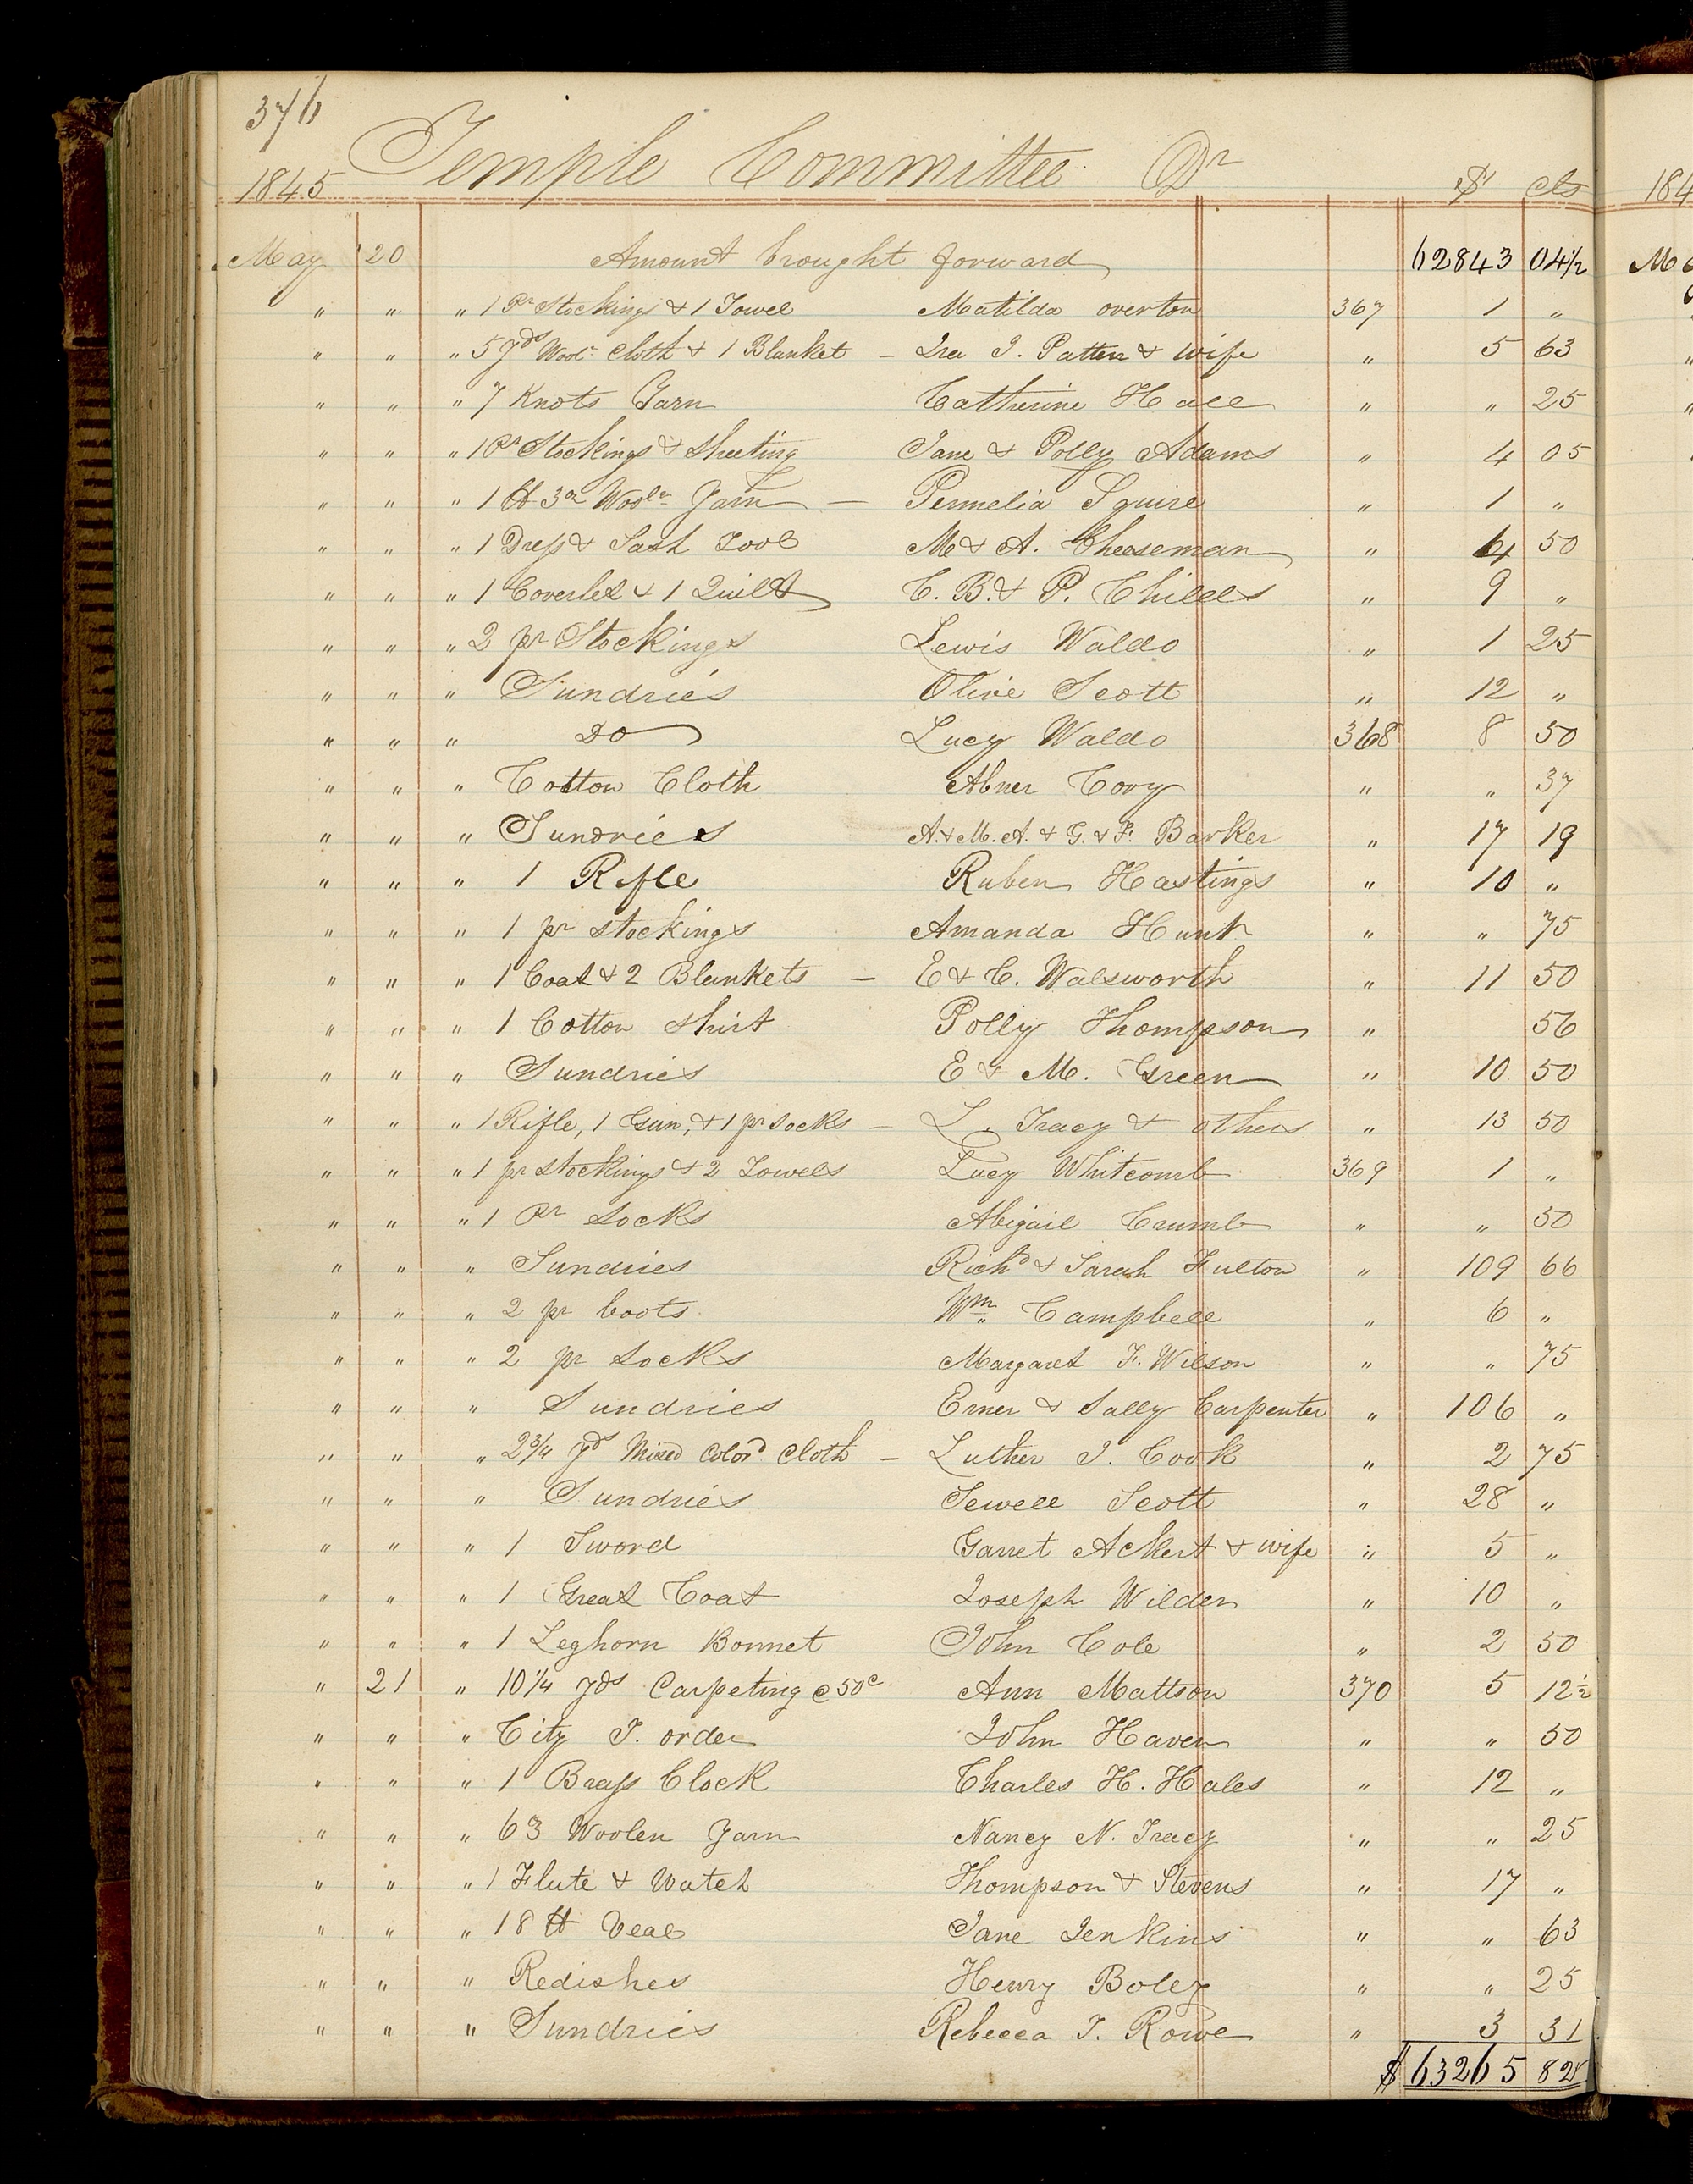 376
1845 Temple Committee Dr $ cts
May 20 Amount brought forward 62843 04½
" " " 1 Pr Stockings & 1 Towel Matilda overton 367 1 "
" " " 5 yds Wooln Cloth & 1 Blanket — Ira J. Patten & wife " 5 63
" " " 7 Knots Yarn Catherine Hall " " 25
" " " 1 Pr Stockings & Sheeting Jane & Polly Adams " 4 05
" " " 1 lb 3oz Wooln Yarn — Permelia Squire " 1 "
" " " 1 Dress & Sash Tool M & A. Cheaseman " 4 50
" " " 1 Coverlet & 1 Quilt C. B. & P. Childs " 9 "
" " " 2 pr Stockings Lewis Waldo " 1 25
" " " Sundries Olive Scott " 12 "
" " " Do Lucy Waldo 368 8 50
" " " Cotton Cloth Abner Cory " " 37
" " " Sundries A. & M. A. & G. & F. Barker " 17 19
" " " 1 Rifle Ruben Hastings " 10 "
" " " 1 pr stockings Amanda Hunt " " 75
" " " 1 Coat & 2 Blankets — E & C. Walsworth " 11 50
" " " 1 Cotton Shirt Polly Thompson " 56
" " " Sundries E & M. Green " 10 50
" " " 1 Rifle, 1 Gun, & 1 pr socks — L. Tracy & others " 13 50
" " " 1 pr stockings & 2 Towels Lucy Whitcomb 369 1 "
" " " 1 Pr Socks Abigail Crumb " " 50
" " " Sundries Richd & Sarah Fulton " 109 66
" " " 2 pr boots Wm Campbell " 6 "
" " " 2 pr Socks Margaret F. Wilson " " 75
" " " Sundries Emer & Sally Carpenter " 106 "
" " " 2¾ yds Mixed Colord Cloth — Luther J. Cook " 2 75
" " " Sundries Sewell Scott " 28 "
" " " 1 Sword Garret Ackert & wife " 5 "
" " " 1 Great Coat Joseph Wilden " 10 "
" " " 1 Leghorn Bonnet John Cole " 2 50
" 21 " 10¼ yds Carpeting @ 50c Ann Mattson 370 5 12½
" " " City T. order John Haven " " 50
" " " 1 Brass Clock Charles H. Hales " 12 "
" " " 6 3 Woolen Yarn Nancy N. Tracy " " 25
" " " 1 Flute & Watch Thompson & Stevens " 17 "
" " " 18 lb Veal Jane Jenkins " " 63
" " " Redishes Henry Boley " " 25
" " " Sundries Rebecca T. Rowe " 3 31
$ 63265 82
184